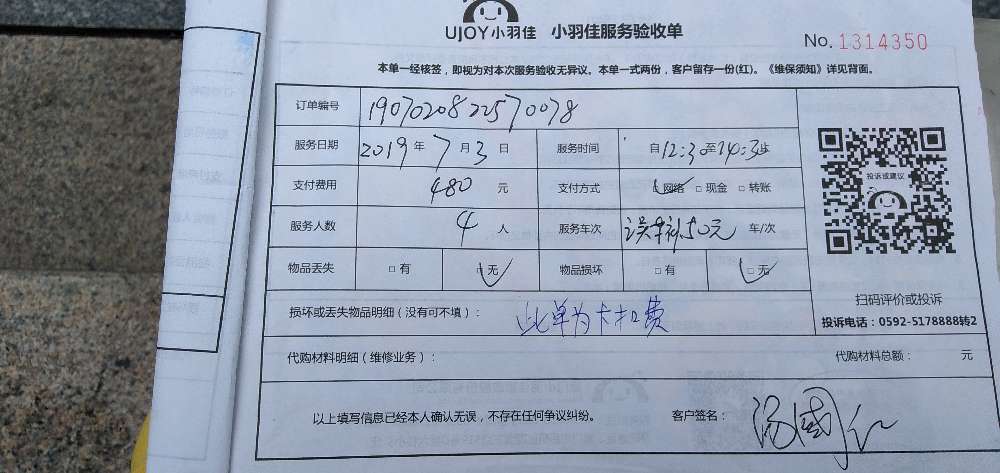 UJOY小羽佳 小羽佳服务验收单
No. 1314350
本单一经核签，即视为对本次服务验收无异议。本单一式两份，客户留存一份(红)。《维保须知》详见背面。
订单编号 1907020822570078
服务日期 2019年7月3日 服务时间 自12:30至14:30止
支付费用 480元 支付方式 □网络 □现金 □转账
投诉或建议
服务人数 4人 服务车次 误车补50元 车/次
物品丢失 □有 □无 物品损坏 □有 □无
扫码评价或投诉
损坏或丢失物品明细（没有可不填）： 此单为卡扣费
投诉电话：0592-5178888转2
代购材料明细（维修业务）： 代购材料总额： 元
以上填写信息已经本人确认无误，不存在任何争议纠纷。 客户签名：